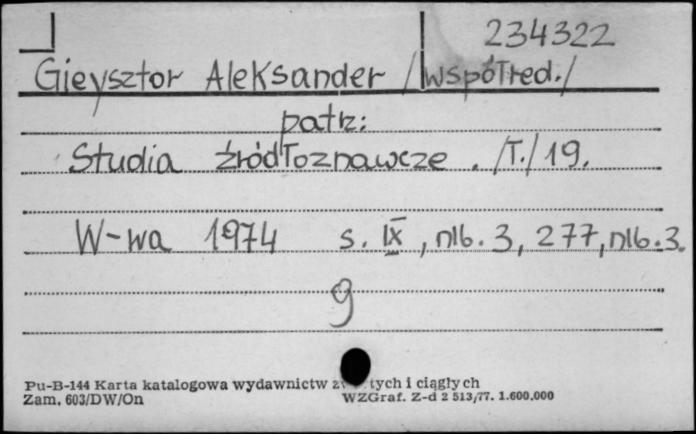 234322
Gieysztor Aleksander /współred./
patrz:
Studia źródłoznawcze . /T./ 19.
W-wa 1974 s. IX, nlb. 3, 277, nlb. 3.
g
Pu-B-144 Karta katalogowa wydawnictw tych i ciągłych
Zam. 603/DW/On WZGraf. Z-d 2 513/77. 1.600.000